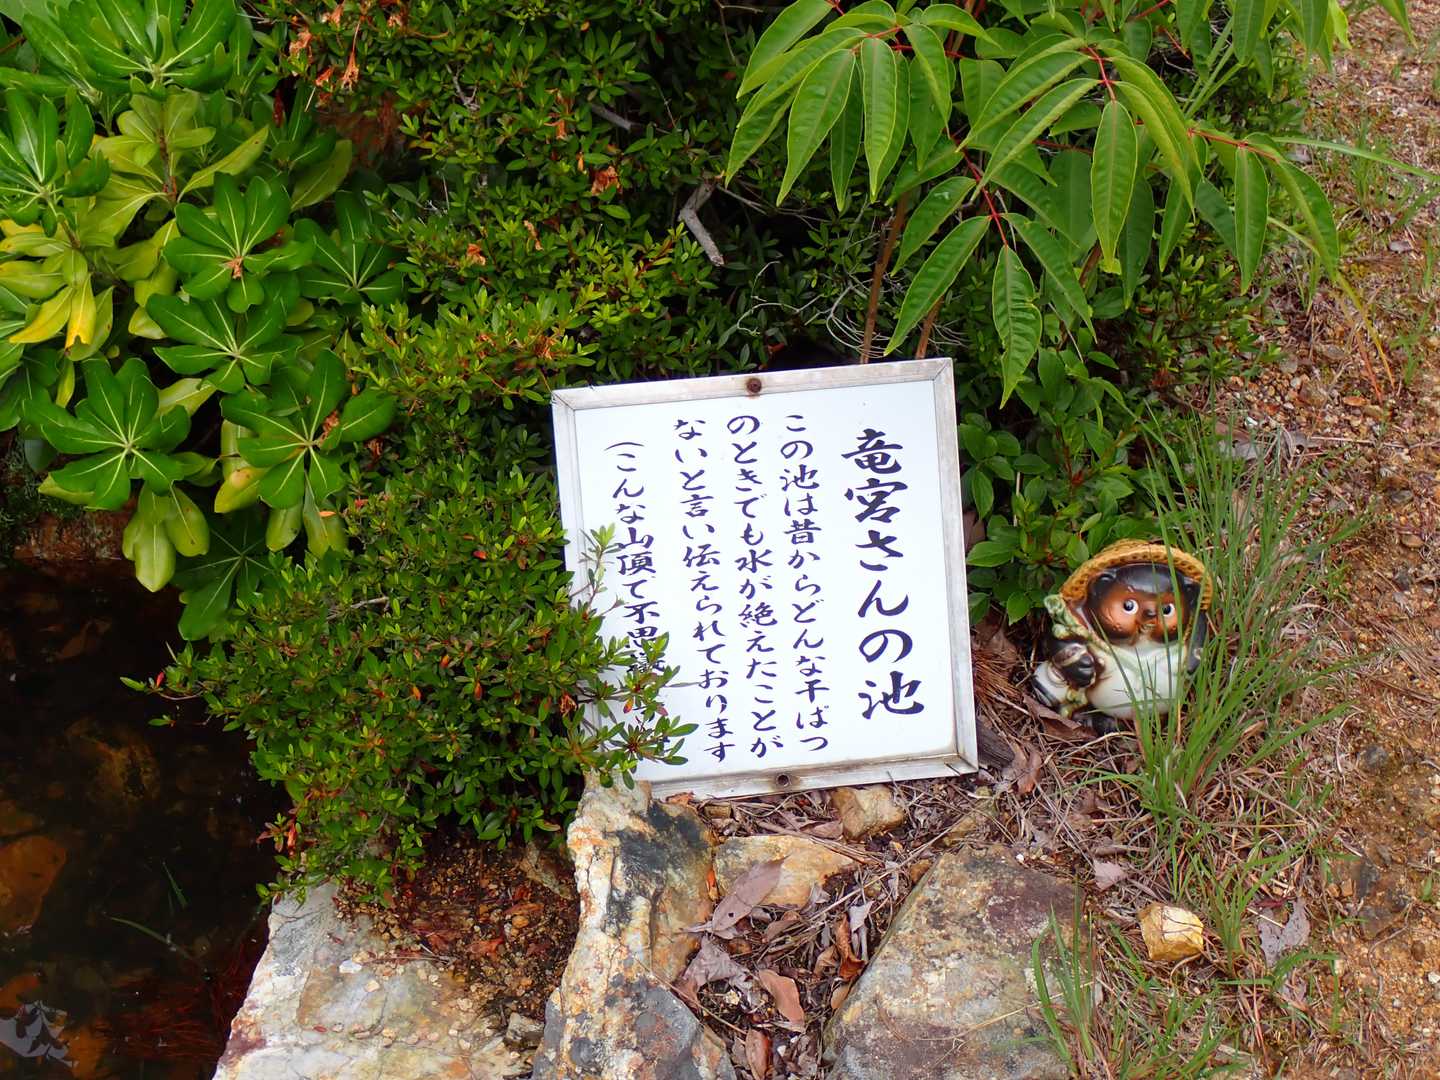 竜宮さんの池
この池は昔からどんな干ばつ
のときでも水が絶えたことが
ないと言い伝えられております
(こんな山頂で不思議